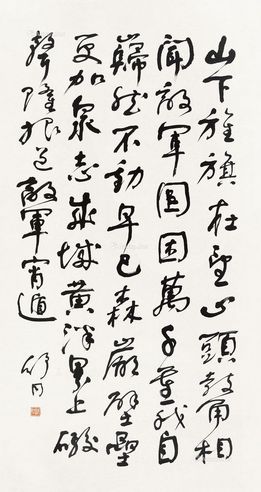 山下旌旗在望山頭鼓角相
聞敵軍圍困萬千重我自
巋然不動早已森嚴壁壘
更加眾志成城黃洋界上礮
聲隆報道敵軍宵遁
舒同